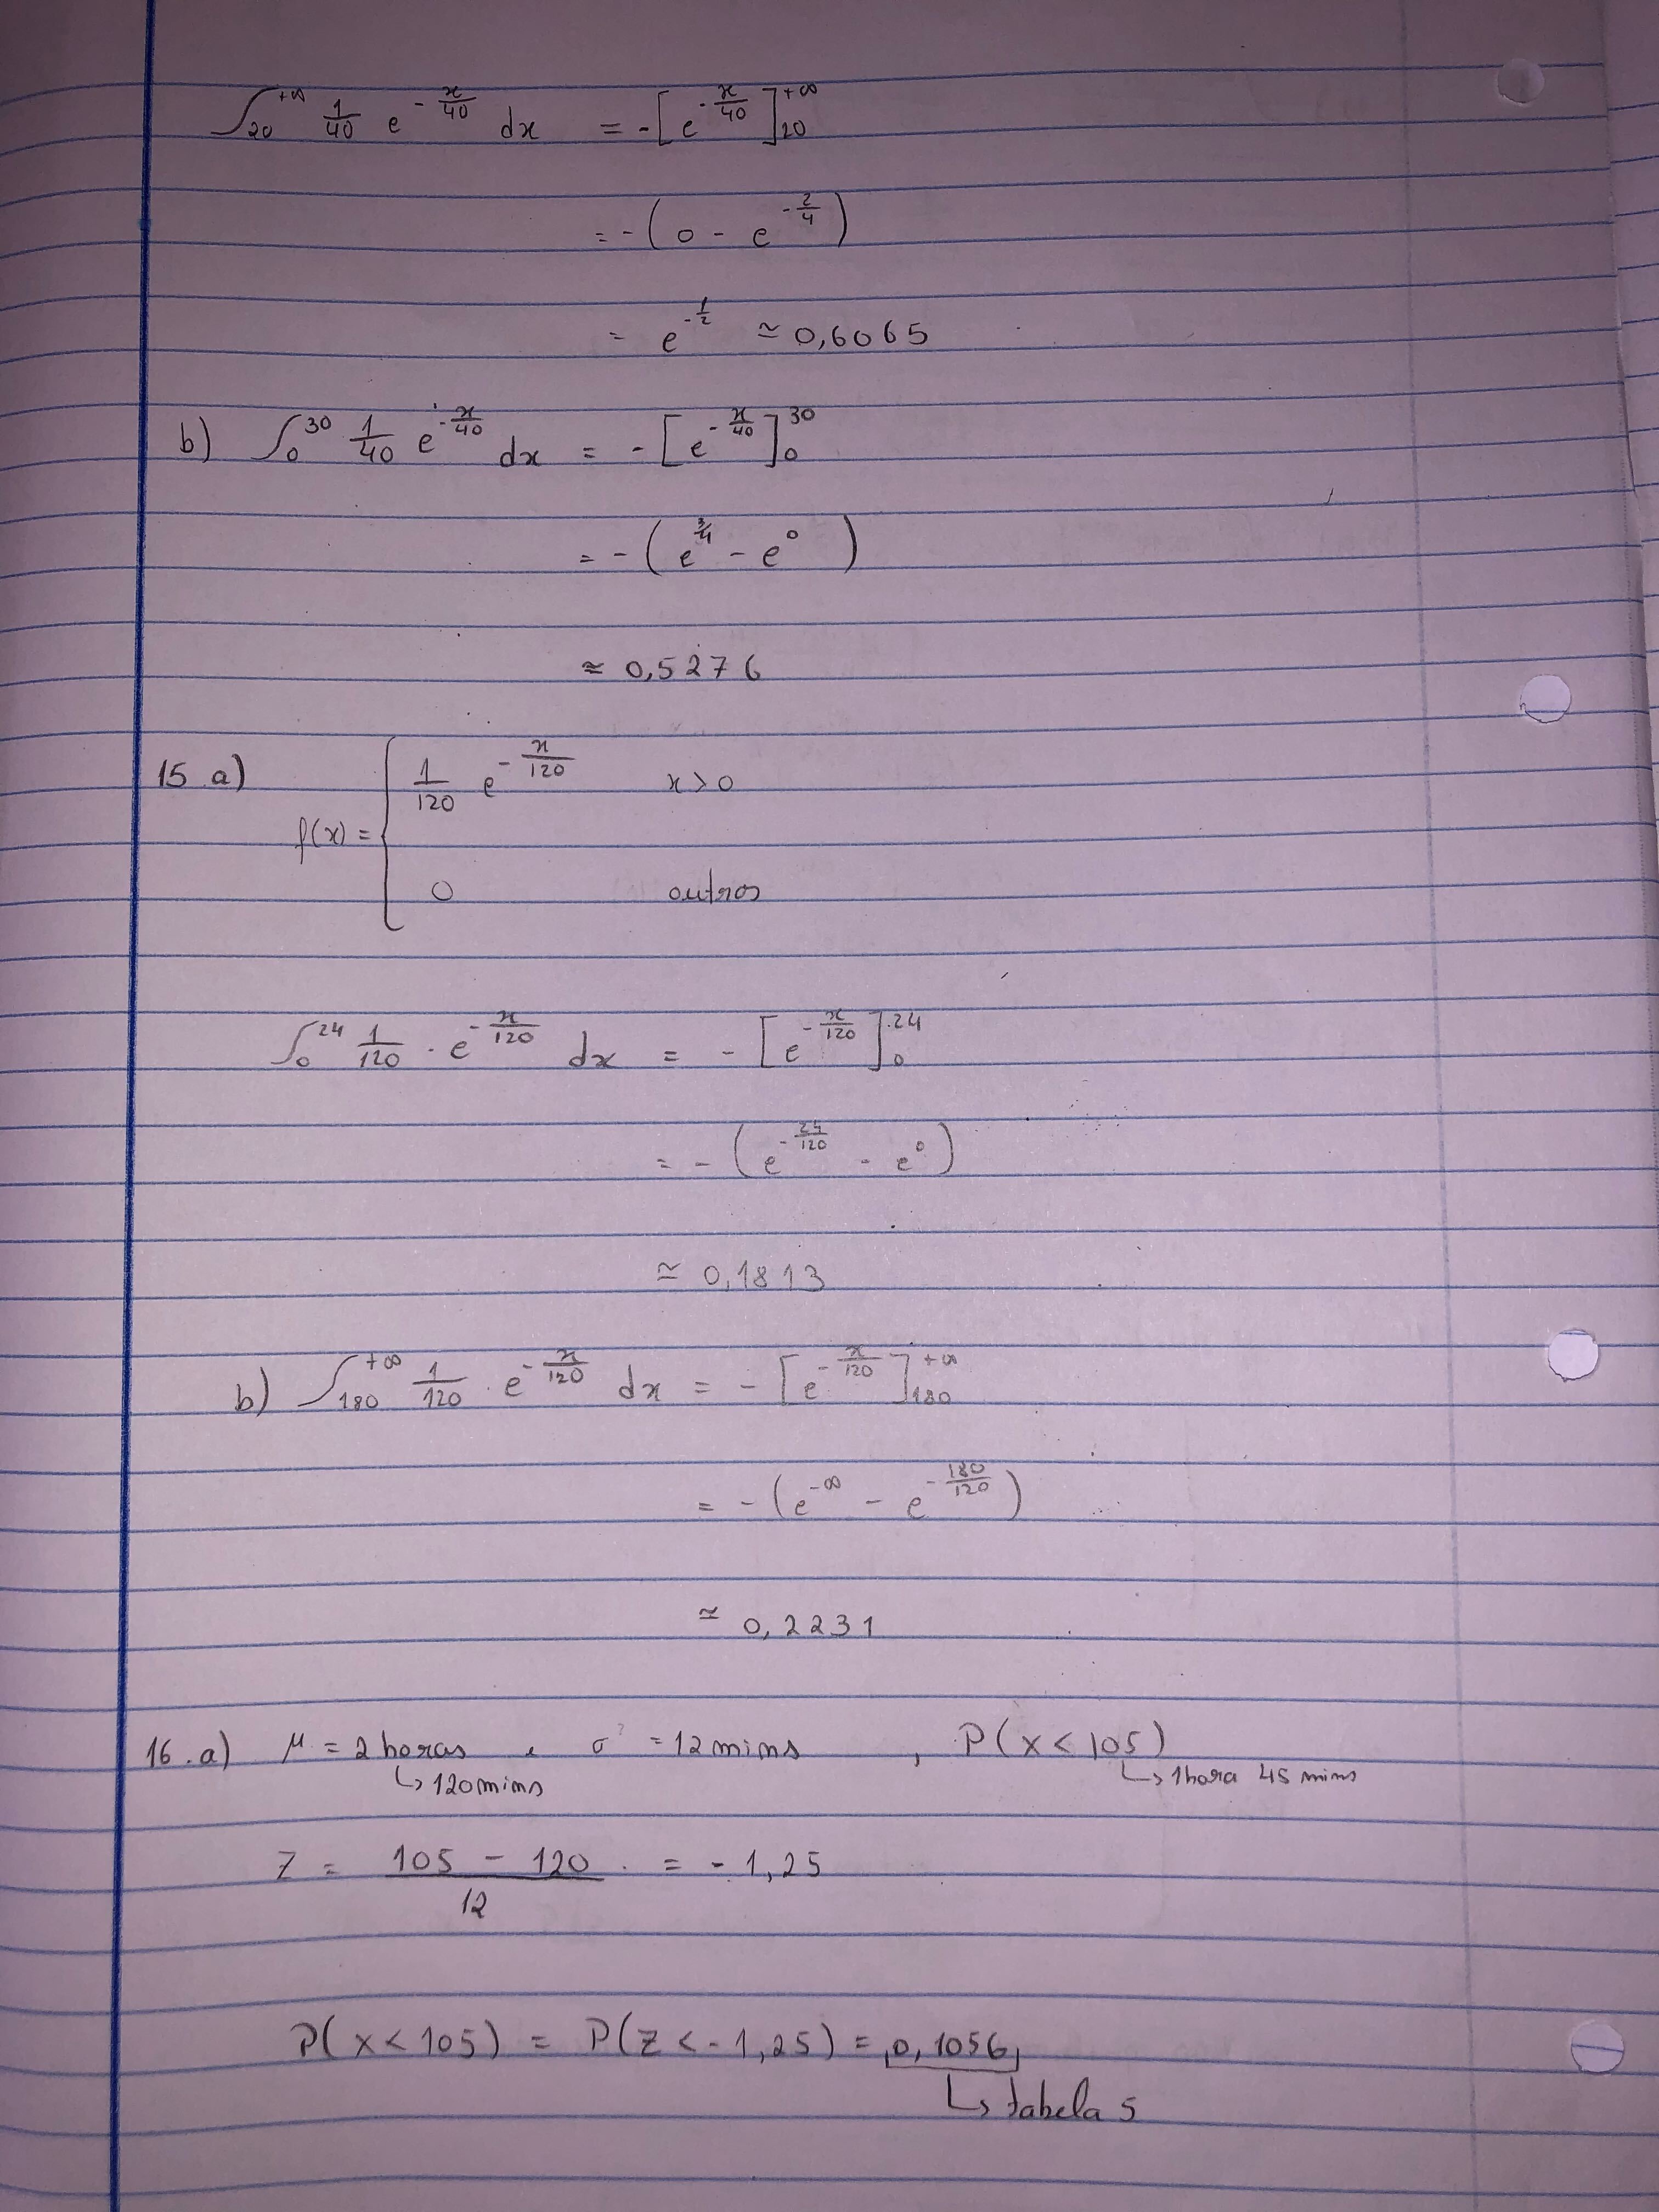 ∫₂₀^{+∞} 1/40 e^{-x/40} dx = -[e^{-x/40}]₂₀^{+∞}
= -(0 - e^{-2/4})
= e^{-1/2} ≃ 0,6065
b) ∫₀^{30} 1/40 e^{-x/40} dx = -[e^{-x/40}]₀^{30}
= -(e^{3/4} - e^{0})
≈ 0,5276
15 a) f(x) = { 1/120 e^{-x/120} x>0
0 outros
∫₀^{24} 1/120 . e^{-x/120} dx = -[e^{-x/120}]₀^{24}
= -(e^{-24/120} - e^{0})
≃ 0,1813
b) ∫₁₈₀^{+∞} 1/120 . e^{-x/120} dx = -[e^{-x/120}]₁₈₀^{+∞}
= -(e^{-∞} - e^{-180/120})
≃ 0,2231
16.a) μ = 2 horas e σ = 12 mins , P(x<105)
↳ 120 mins ↳ 1 hora 45 mins
Z = (105 - 120)/12 = -1,25
P(x<105) = P(Z<-1,25) = 0,1056
↳ tabela 5